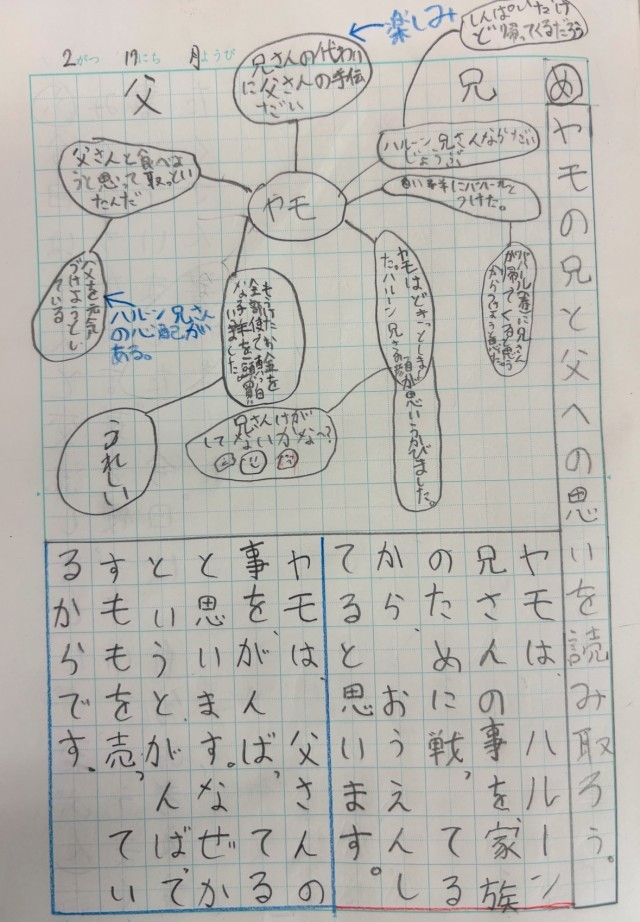 2がつ 17にち 月ようび
め ヤモの兄と父への思いを読み取ろう。
兄
父
ヤモ
楽しみ
兄さんの代わり
に父さんの手伝
だい
しんぱいだけ
ど帰ってくるだろう
ハルーン兄さんならだい
じょうぶ
白い子羊にバハールと
つけた。
ヤモはどきっとしまし
た。ハルーン兄さんの
顔が思いうかびました。
兄さんけが
してないかな〜?
もうけたお金を
全部使て、真っ白
な子羊を一頭、買
いました。
うれしい
父さんと食べよ
うと思って取っとい
たんだ
父を元気
づけようとし
ている
ハルーン兄さん
の心配が
ある。
ヤモは、ハルーン
兄さんの事を、家族
のために戦、てる
から、おうえんし
てると思います。
ヤモは、父さんの
事を、がんば、てる
と思います。なぜか
というと、がんばで
すももを売、てい
るからです、